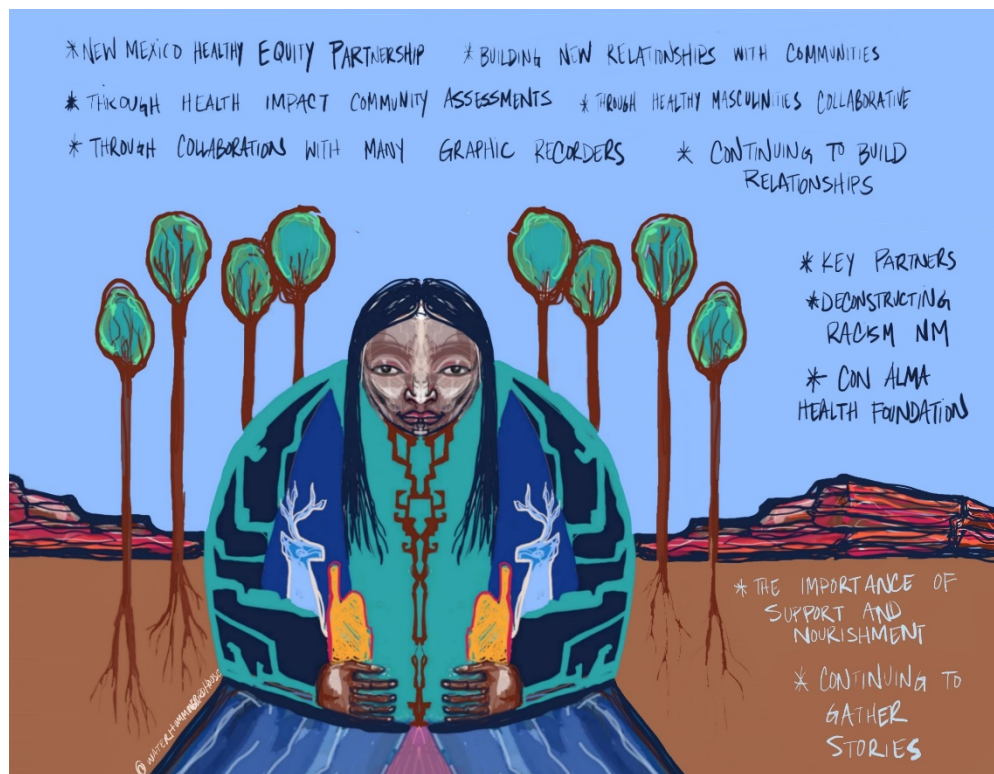 * NEW MEXICO HEALTHY EQUITY PARTNERSHIP
* BUILDING NEW RELATIONSHIPS WITH COMMUNITIES
* THROUGH HEALTH IMPACT COMMUNITY ASSESSMENTS
* THROUGH HEALTHY MASCULINITIES COLLABORATIVE
* THROUGH COLLABORATION WITH MANY GRAPHIC RECORDERS
* CONTINUING TO BUILD
RELATIONSHIPS
* KEY PARTNERS
* DECONSTRUCTING
RACISM NM
* CON ALMA
HEALTH FOUNDATION
* THE IMPORTANCE OF
SUPPORT AND
NOURISHMENT
* CONTINUING TO
GATHER
STORIES